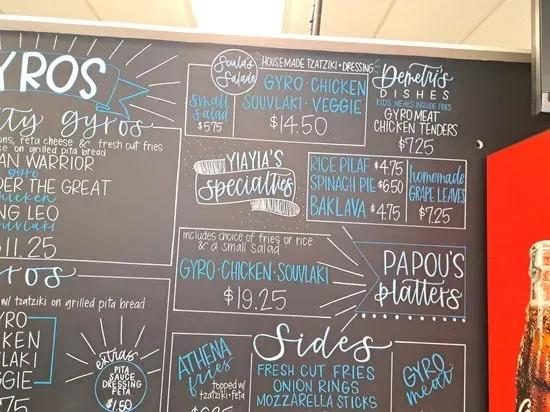 YROS
ty gyros
ons, feta cheese & fresh cut fries
ce on grilled pita bread
AN WARRIOR
gyro
DER THE GREAT
chicken
NG LEO
souvlaki
11.25
ros
w/ tzatziki on grilled pita bread
YRO
KEN
LAKI
GGIE
.75
extras
PITA
SAUCE
DRESSING
FETA
$1.50
Soula's
Salads
HOUSEMADE TZATZIKI • DRESSING
small
salad
$5.75
GYRO • CHICKEN
SOUVLAKI • VEGGIE
$14.50
Demetri's
DISHES
KIDS MEALS INCLUDE FRIES
GYRO MEAT
CHICKEN TENDERS
$7.25
YIAYIA'S
specialties
RICE PILAF $4.75
SPINACH PIE $6.50
BAKLAVA $4.75
homemade
GRAPE LEAVES
$7.25
includes choice of fries or rice
& a small salad
GYRO • CHICKEN • SOUVLAKI
$19.25
PAPOU'S
platters
Sides
ATHENA
fries
topped w/
tzatziki • feta
FRESH CUT FRIES
ONION RINGS
MOZZARELLA STICKS
GYRO
meat